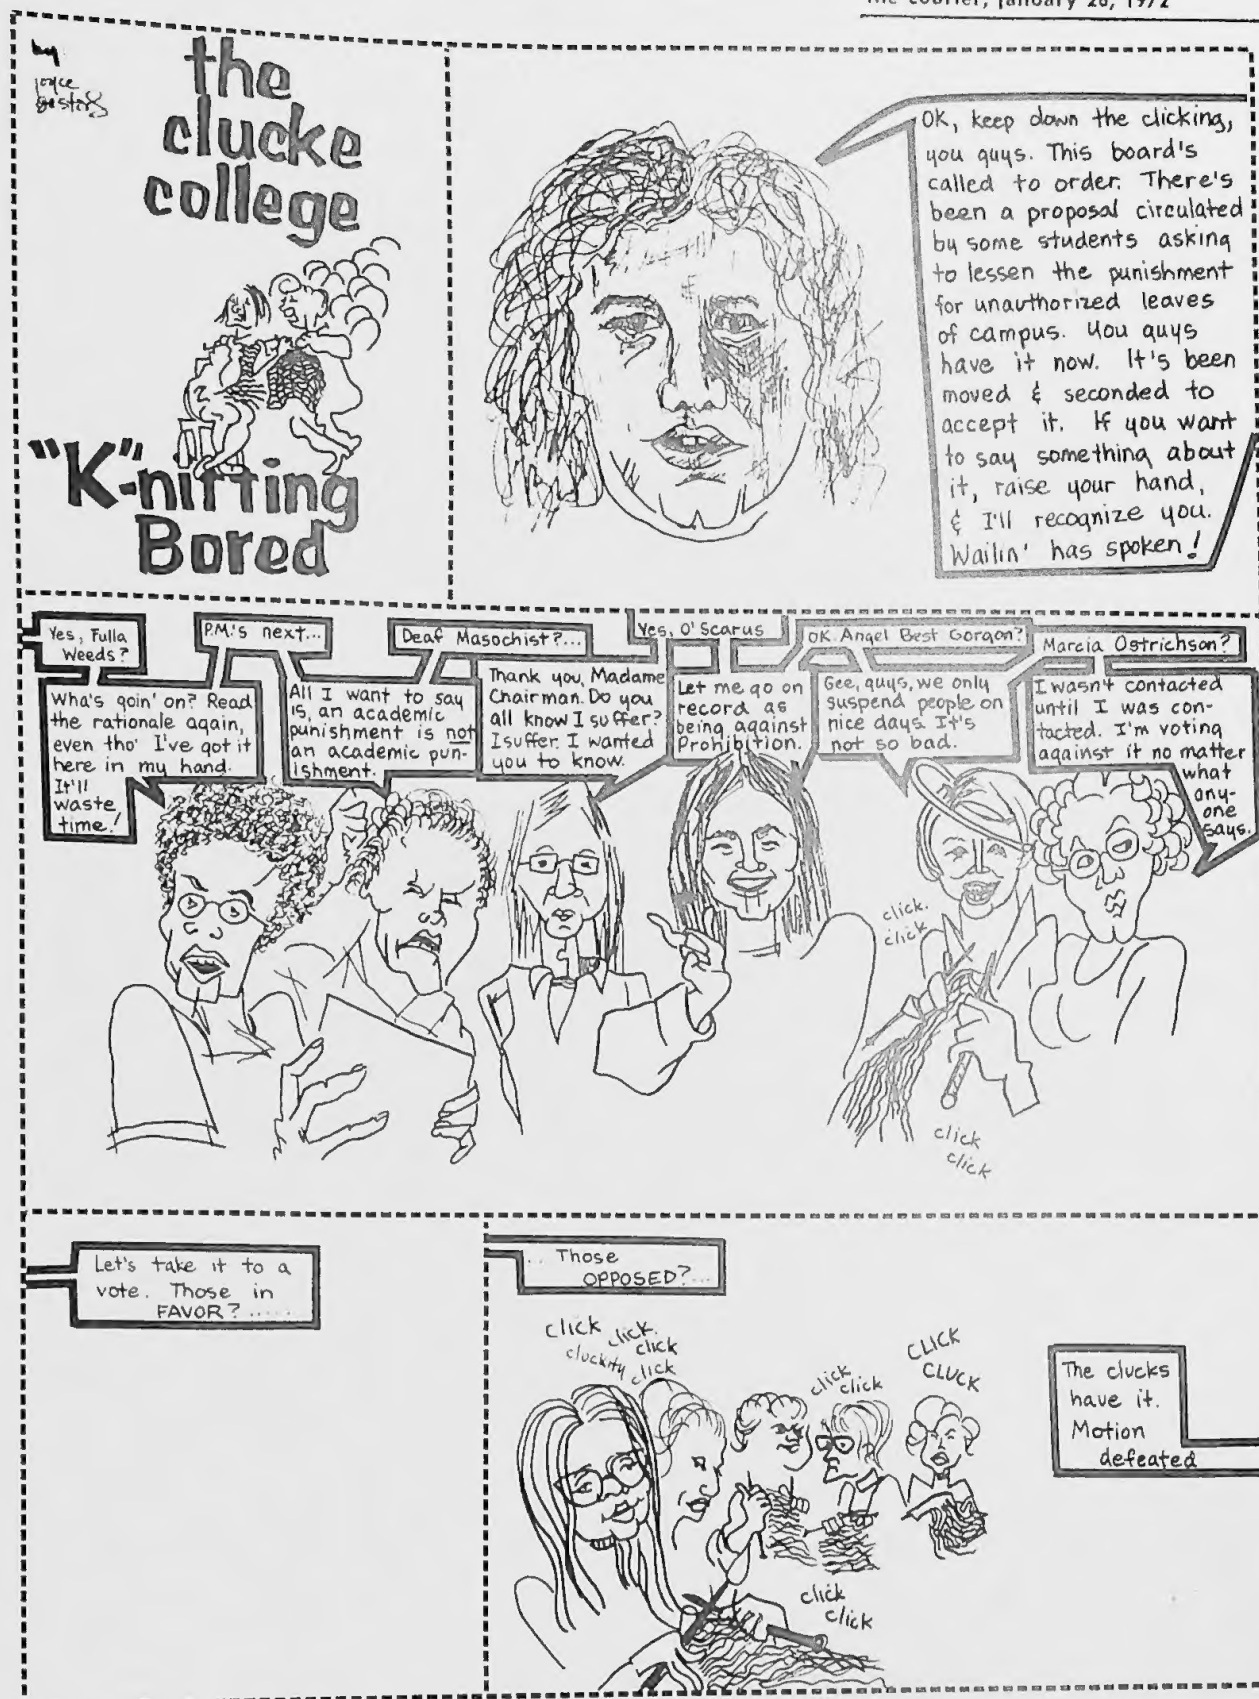 The Courier, January 28, 1972
by
joyce
the
clucke
college
"K"-nitting
Bored
OK, keep down the clicking,
you guys. This board's
called to order. There's
been a proposal circulated
by some students asking
to lessen the punishment
for unauthorized leaves
of campus. You guys
have it now. It's been
moved & seconded to
accept it. If you want
to say something about
it, raise your hand,
& I'll recognize you.
Wailin' has spoken!
Yes, Fulla
Weeds?
Wha's goin' on? Read
the rationale again,
even tho' I've got it
here in my hand.
It'll
waste
time!
P.M.'s next...
All I want to say
is, an academic
punishment is not
an academic pun-
ishment.
Deaf Masochist?...
Thank you, Madame
Chairman. Do you
all know I suffer?
I suffer. I wanted
you to know.
Yes, O'Scarus
Let me go on
record as
being against
Prohibition.
OK. Angel Best Gorgon?
Gee, guys, we only
suspend people on
nice days. It's
not so bad.
Marcia Ostrichson?
I wasn't contacted
until I was con-
tacted. I'm voting
against it no matter
what
any-
one
says.
click.
click
click
click
Let's take it to a
vote. Those in
FAVOR?.....
.. Those
OPPOSED?...
click click.
click
cluckity click
click
click
CLICK
CLUCK
click
click
The clucks
have it.
Motion
defeated